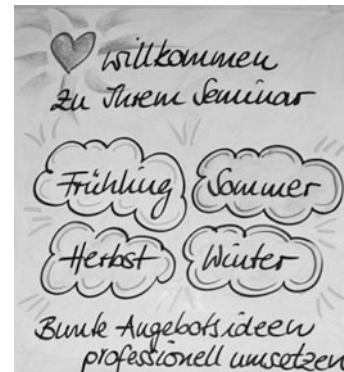 willkommen
zu Ihrem Seminar
Frühling Sommer
Herbst Winter
Bunte Angebotsideen
professionell umsetzen